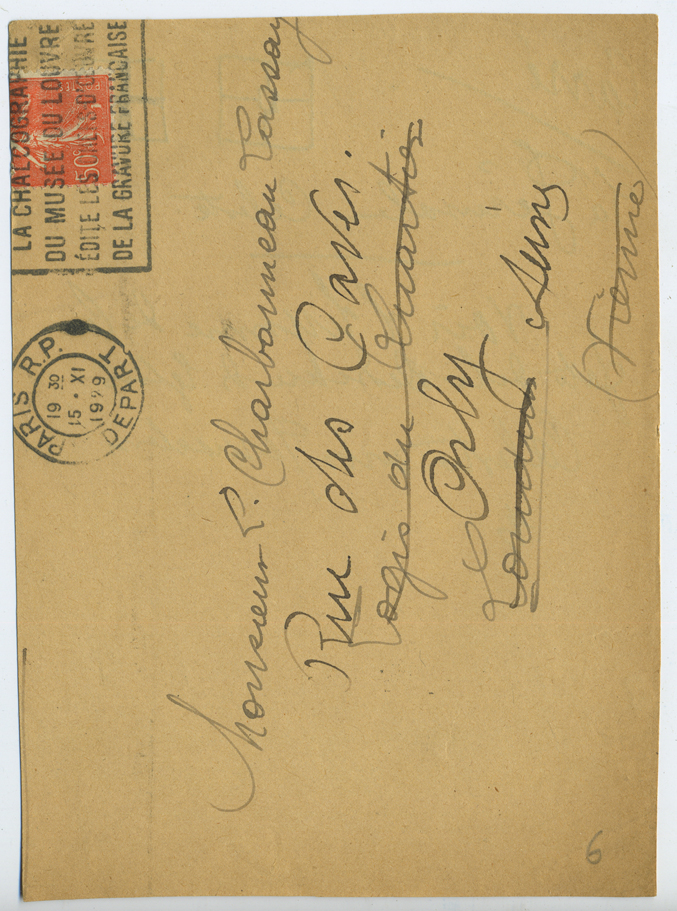 LA CHALCOGRAPHIE
DU MUSÉE DU LOUVRE
ÉDITE LES CHEFS D'OEUVRE
DE LA GRAVURE FRANÇAISE
50
PARIS R.P.
19 30
15 • XI
1929
DEPART
Monsieur L. Charbonneau Lassay
Rue des Caves.
Logis du Chartier
Orly Seine
Loudun
(Vienne)
6